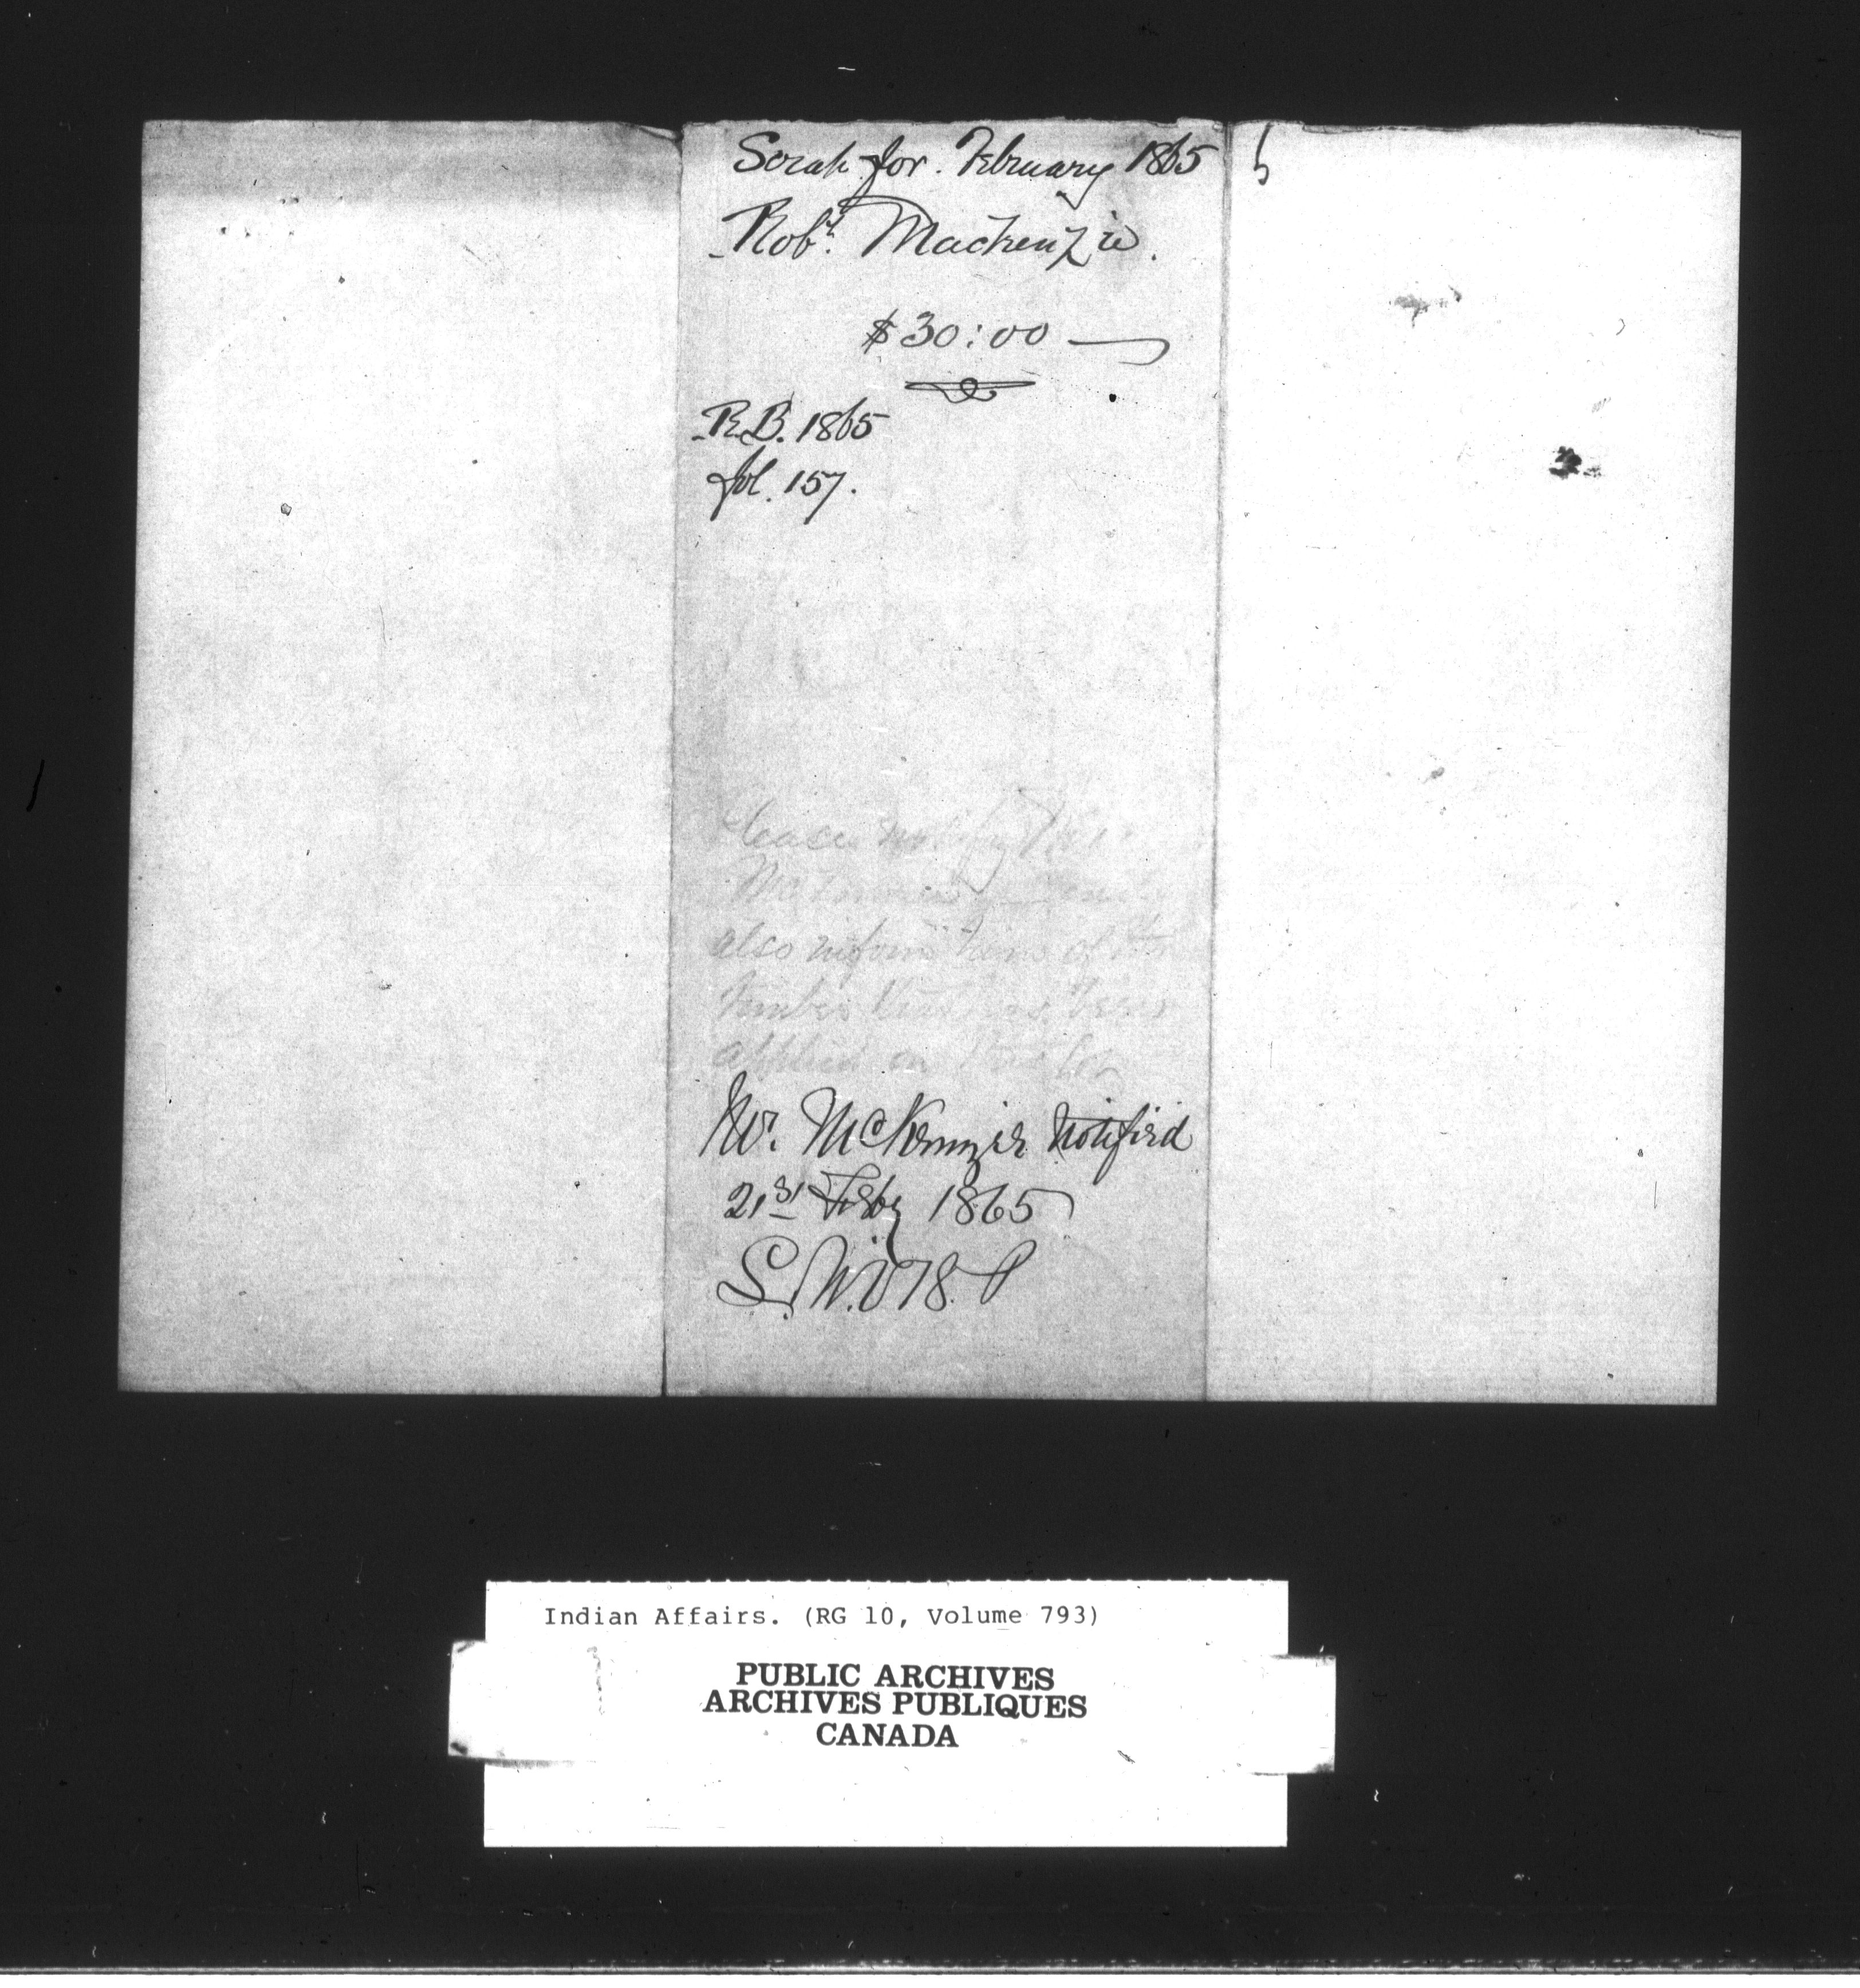 Sorah for. February 1865
Robt. Mackenzie.
$30:00
R.B. 1865
fol. 157.
Please notify
also inform him of
timber
applied on
Mr. McKenzie notified
21st Feby 1865
5
Indian Affairs. (RG 10, Volume 793)
PUBLIC ARCHIVES
ARCHIVES PUBLIQUES
CANADA